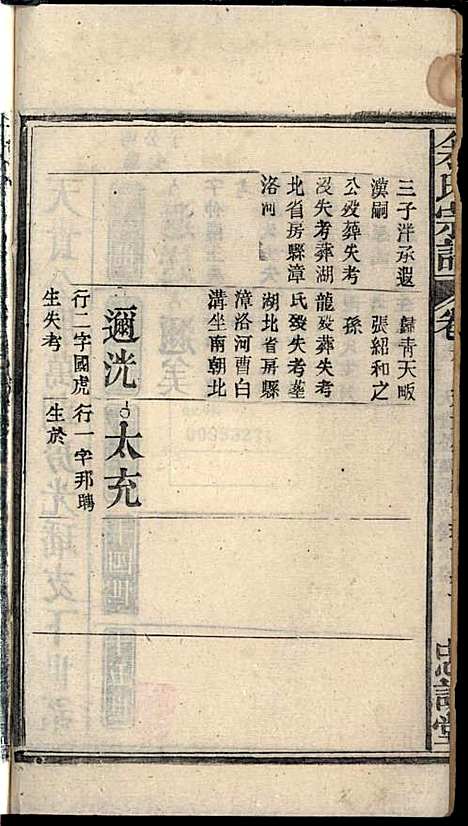 余氏宗譜
卷
忠諫堂
三子洋承遐
漢嗣
公歿葬失考
沒失考葬湖
北省房縣漳
洛河
歸青天畈
張紹和之
孫
龍歿葬失考
氏歿失考墓
湖北省房縣
漳洛河曹白
溝坐南朝北
二邇洸
行二字國虎
生失考
太充
行一字邦聘
生於